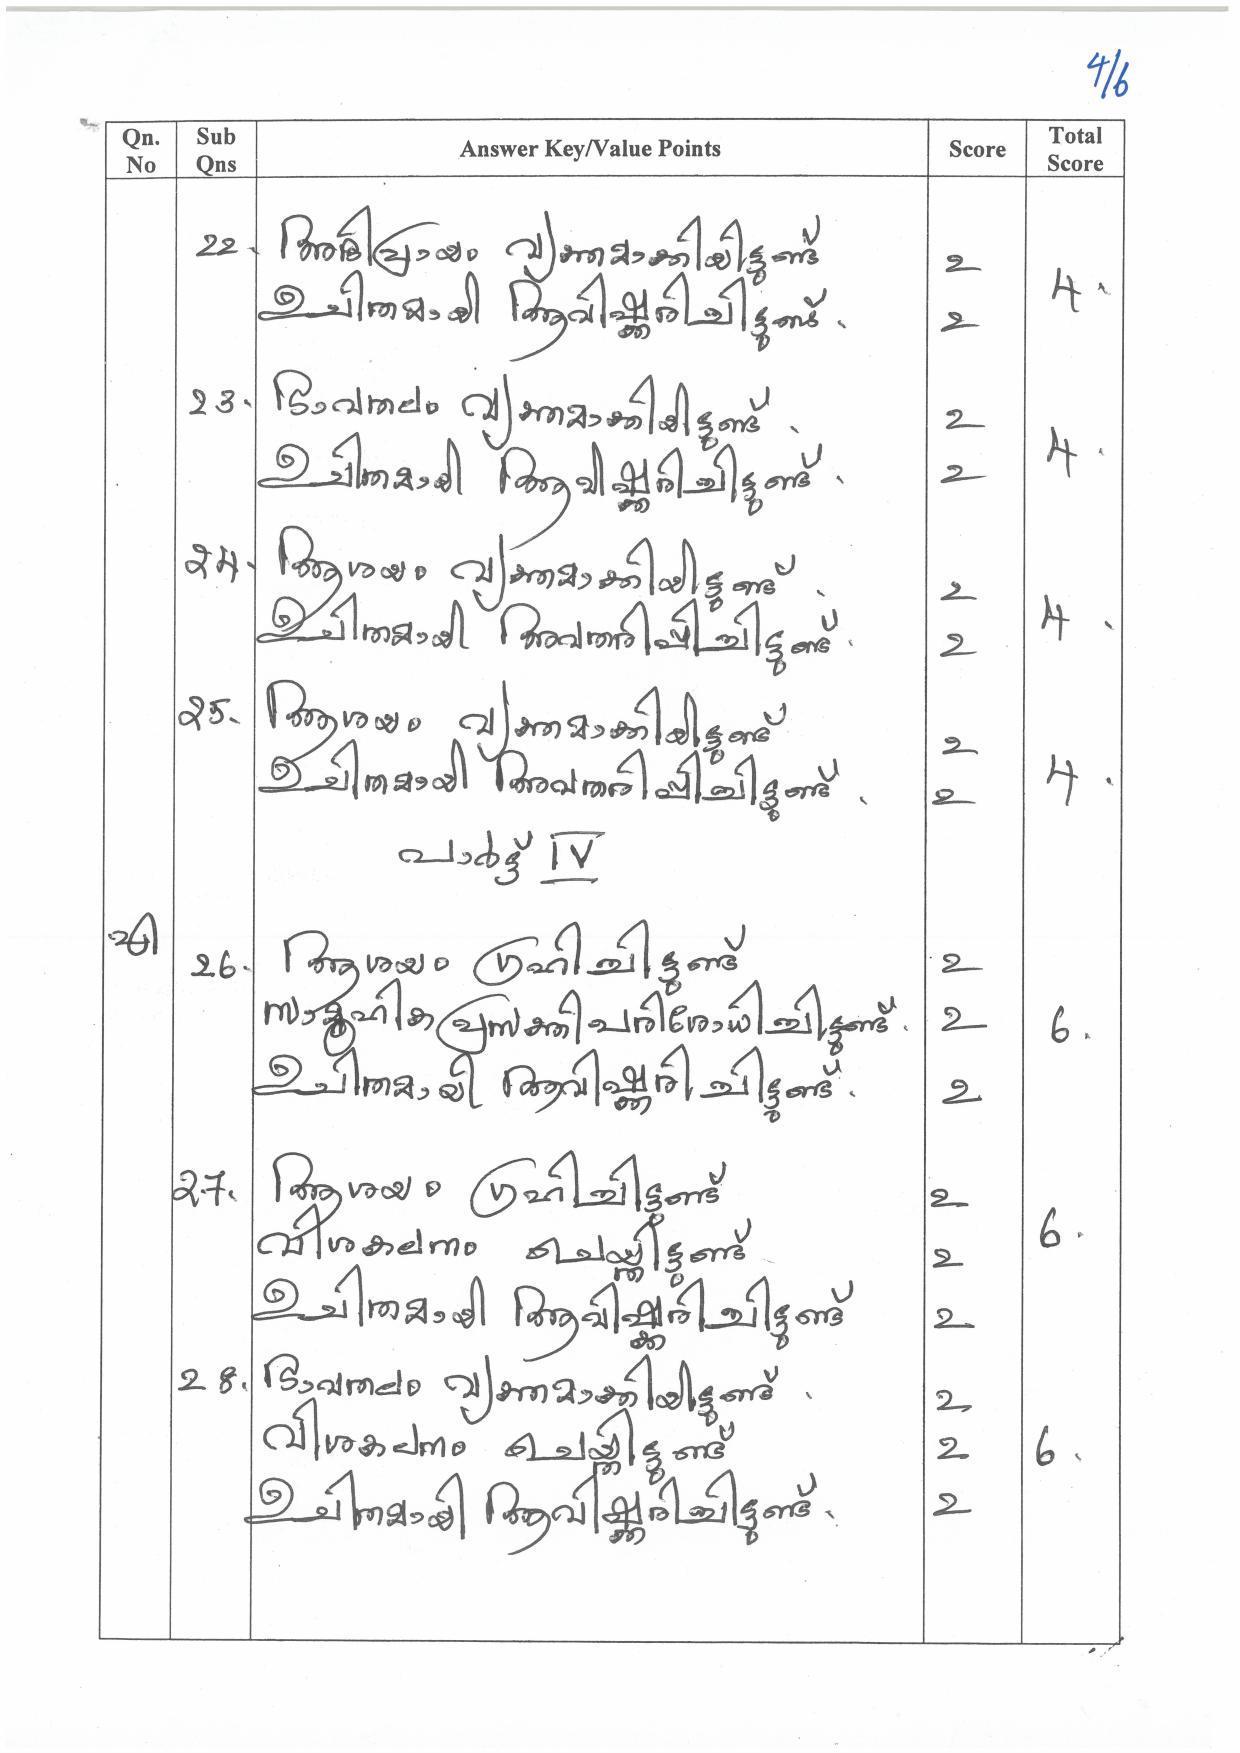 4/6
Qn. No Sub Qns Answer Key/Value Points Score Total Score
22. അഭിപ്രായം വ്യക്തമാക്കിയിട്ടുണ്ട് 2
ഉചിതമായി ആവിഷ്ക്കരിച്ചിട്ടുണ്ട്. 2 4.
23. ഭാവതലം വ്യക്തമാക്കിയിട്ടുണ്ട്. 2
ഉചിതമായി ആവിഷ്ക്കരിച്ചിട്ടുണ്ട്. 2 4.
24. ആശയം വ്യക്തമാക്കിയിട്ടുണ്ട്. 2
ഉചിതമായി അവതരിപ്പിച്ചിട്ടുണ്ട്. 2 4.
25. ആശയം വ്യക്തമാക്കിയിട്ടുണ്ട് 2
ഉചിതമായി അവതരിപ്പിച്ചിട്ടുണ്ട്. 2 4.
പാർട്ട് IV
26. ആശയം ഗ്രഹിച്ചിട്ടുണ്ട് 2
സാമൂഹികപ്രസക്തി പരിശോധിച്ചിട്ടുണ്ട്. 2 6.
ഉചിതമായി ആവിഷ്ക്കരിച്ചിട്ടുണ്ട്. 2
27. ആശയം ഗ്രഹിച്ചിട്ടുണ്ട് 2
വിശകലനം ചെയ്തിട്ടുണ്ട് 2 6.
ഉചിതമായി ആവിഷ്ക്കരിച്ചിട്ടുണ്ട് 2
28. ഭാവതലം വ്യക്തമാക്കിയിട്ടുണ്ട്. 2
വിശകലനം ചെയ്തിട്ടുണ്ട് 2 6.
ഉചിതമായി ആവിഷ്ക്കരിച്ചിട്ടുണ്ട്. 2